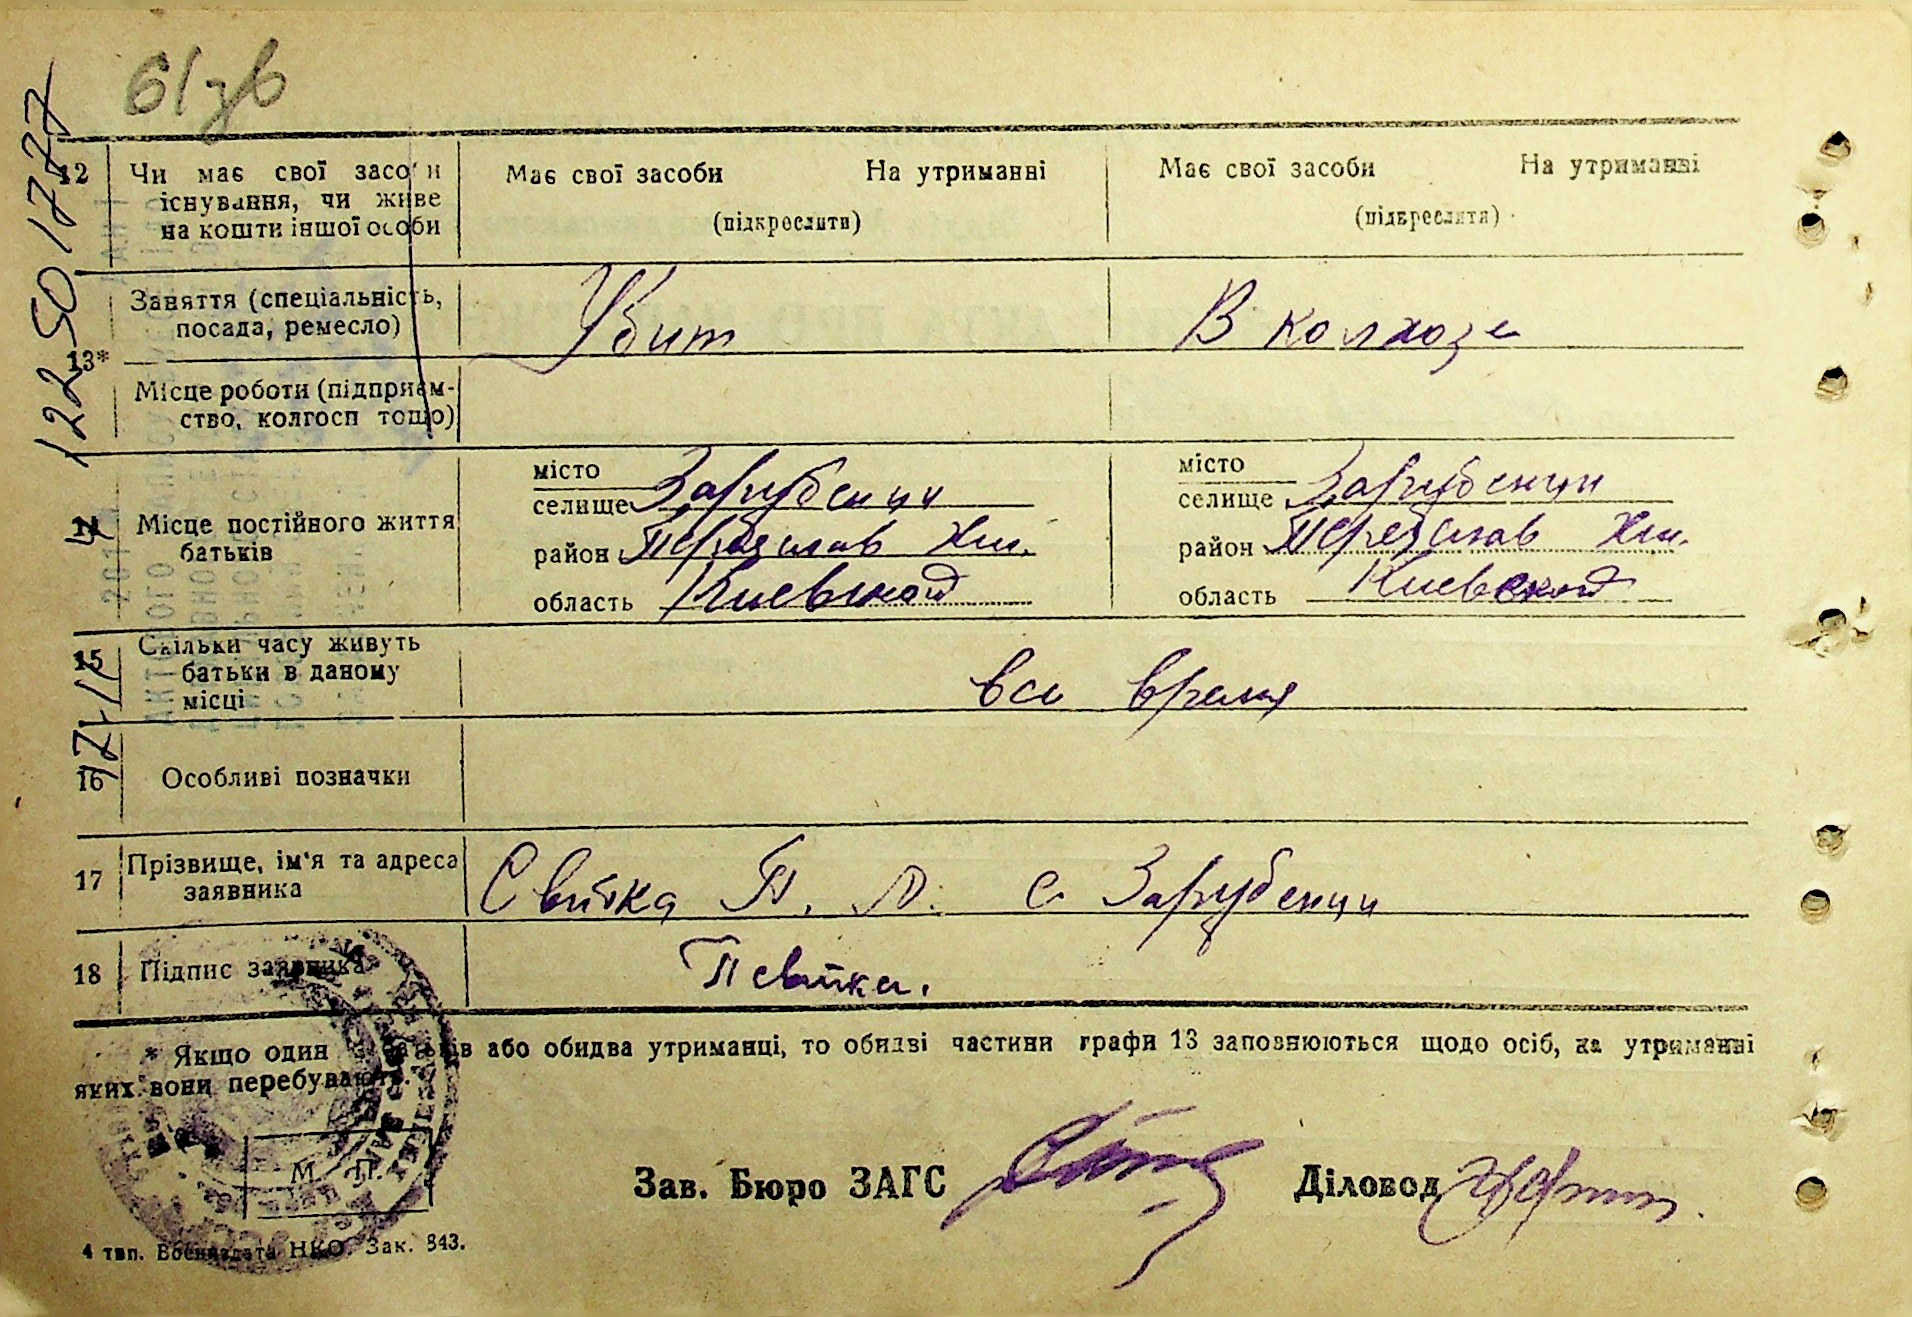 61зв
122 50 1777
12 Чи має свої засоби Має свої засоби На утриманні Має свої засоби На утриманні
існування, чи живе (підкреслити) (підкреслити)
на кошти іншої особи
13* Заняття (спеціальність, Убит В колхозе
посада, ремесло)
Місце роботи (підприєм-
ство, колгосп тощо)
14 Місце постійного життя місто місто
батьків селище Зарубенци селище Зарубенци
район Переяслав Хм. район Переяслав Хм.
область Киевской область Киевской
15 Скільки часу живуть все время
батьки в даному
місці
16 Особливі позначки
17 Прізвище, ім'я та адреса Свитка П. Л. с. Зарубенци
заявника
18 Підпис заявника П Свитка.
* Якщо один з батьків або обидва утриманці, то обидві частини графи 13 заповнюються щодо осіб, на утриманні
яких вони перебувають.
М. П.
Зав. Бюро ЗАГС Діловод
4 тип. Воениздата НКО. Зак. 843.